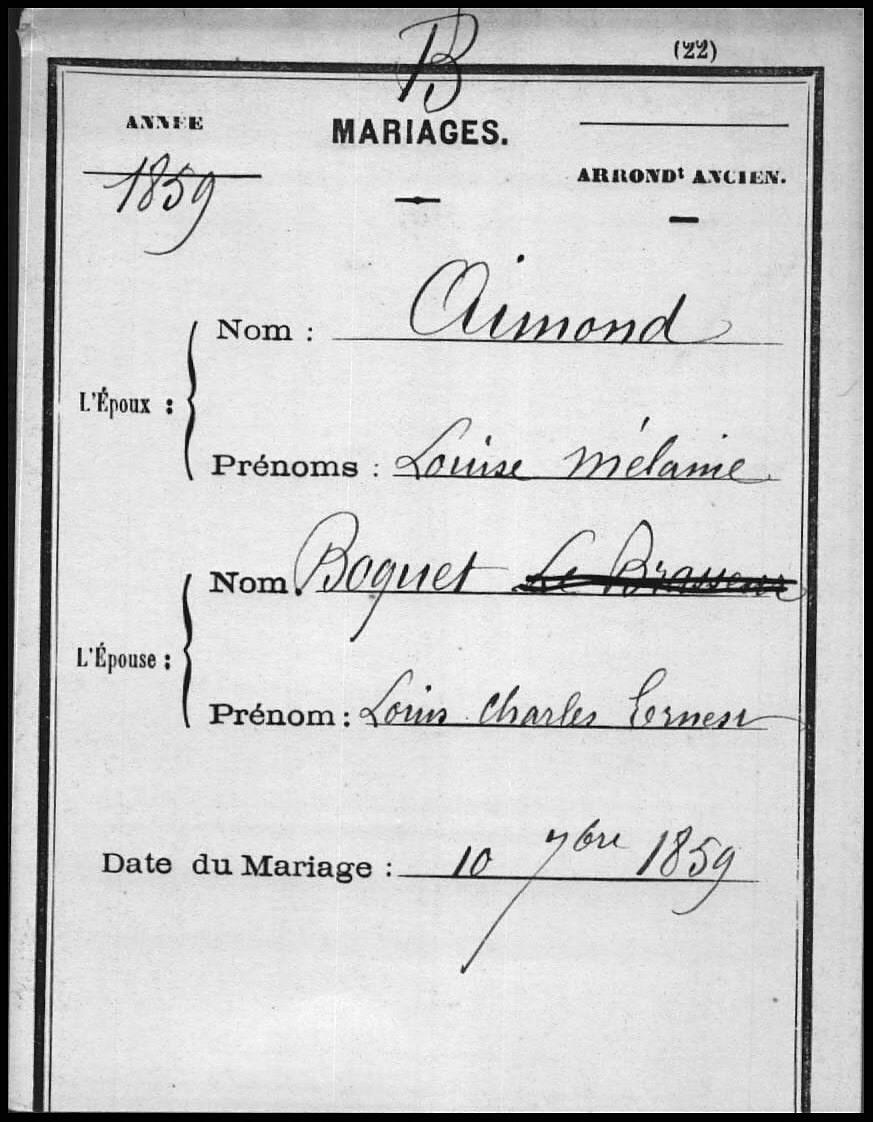 B
(22)
ANNÉE
MARIAGES.
1859
ARRONDt ANCIEN.
Nom : Aimond
L'Époux :
Prénoms : Louise Mélanie
Nom Boquet Le Brasseur
L'Épouse :
Prénom : Louis Charles Ernest
Date du Mariage : 10 7bre 1859